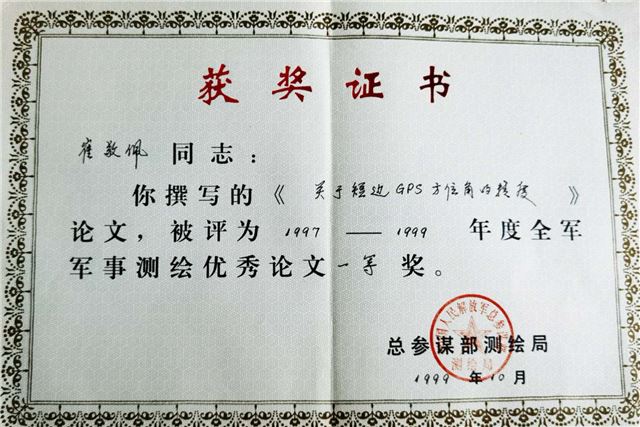 获奖证书
崔敬佩 同志：
你撰写的《关于短边GPS方位角的精度》
论文，被评为 1997 — 1999 年度全军
军事测绘优秀论文一等奖。
总参谋部测绘局
1999 年 10 月
测绘局